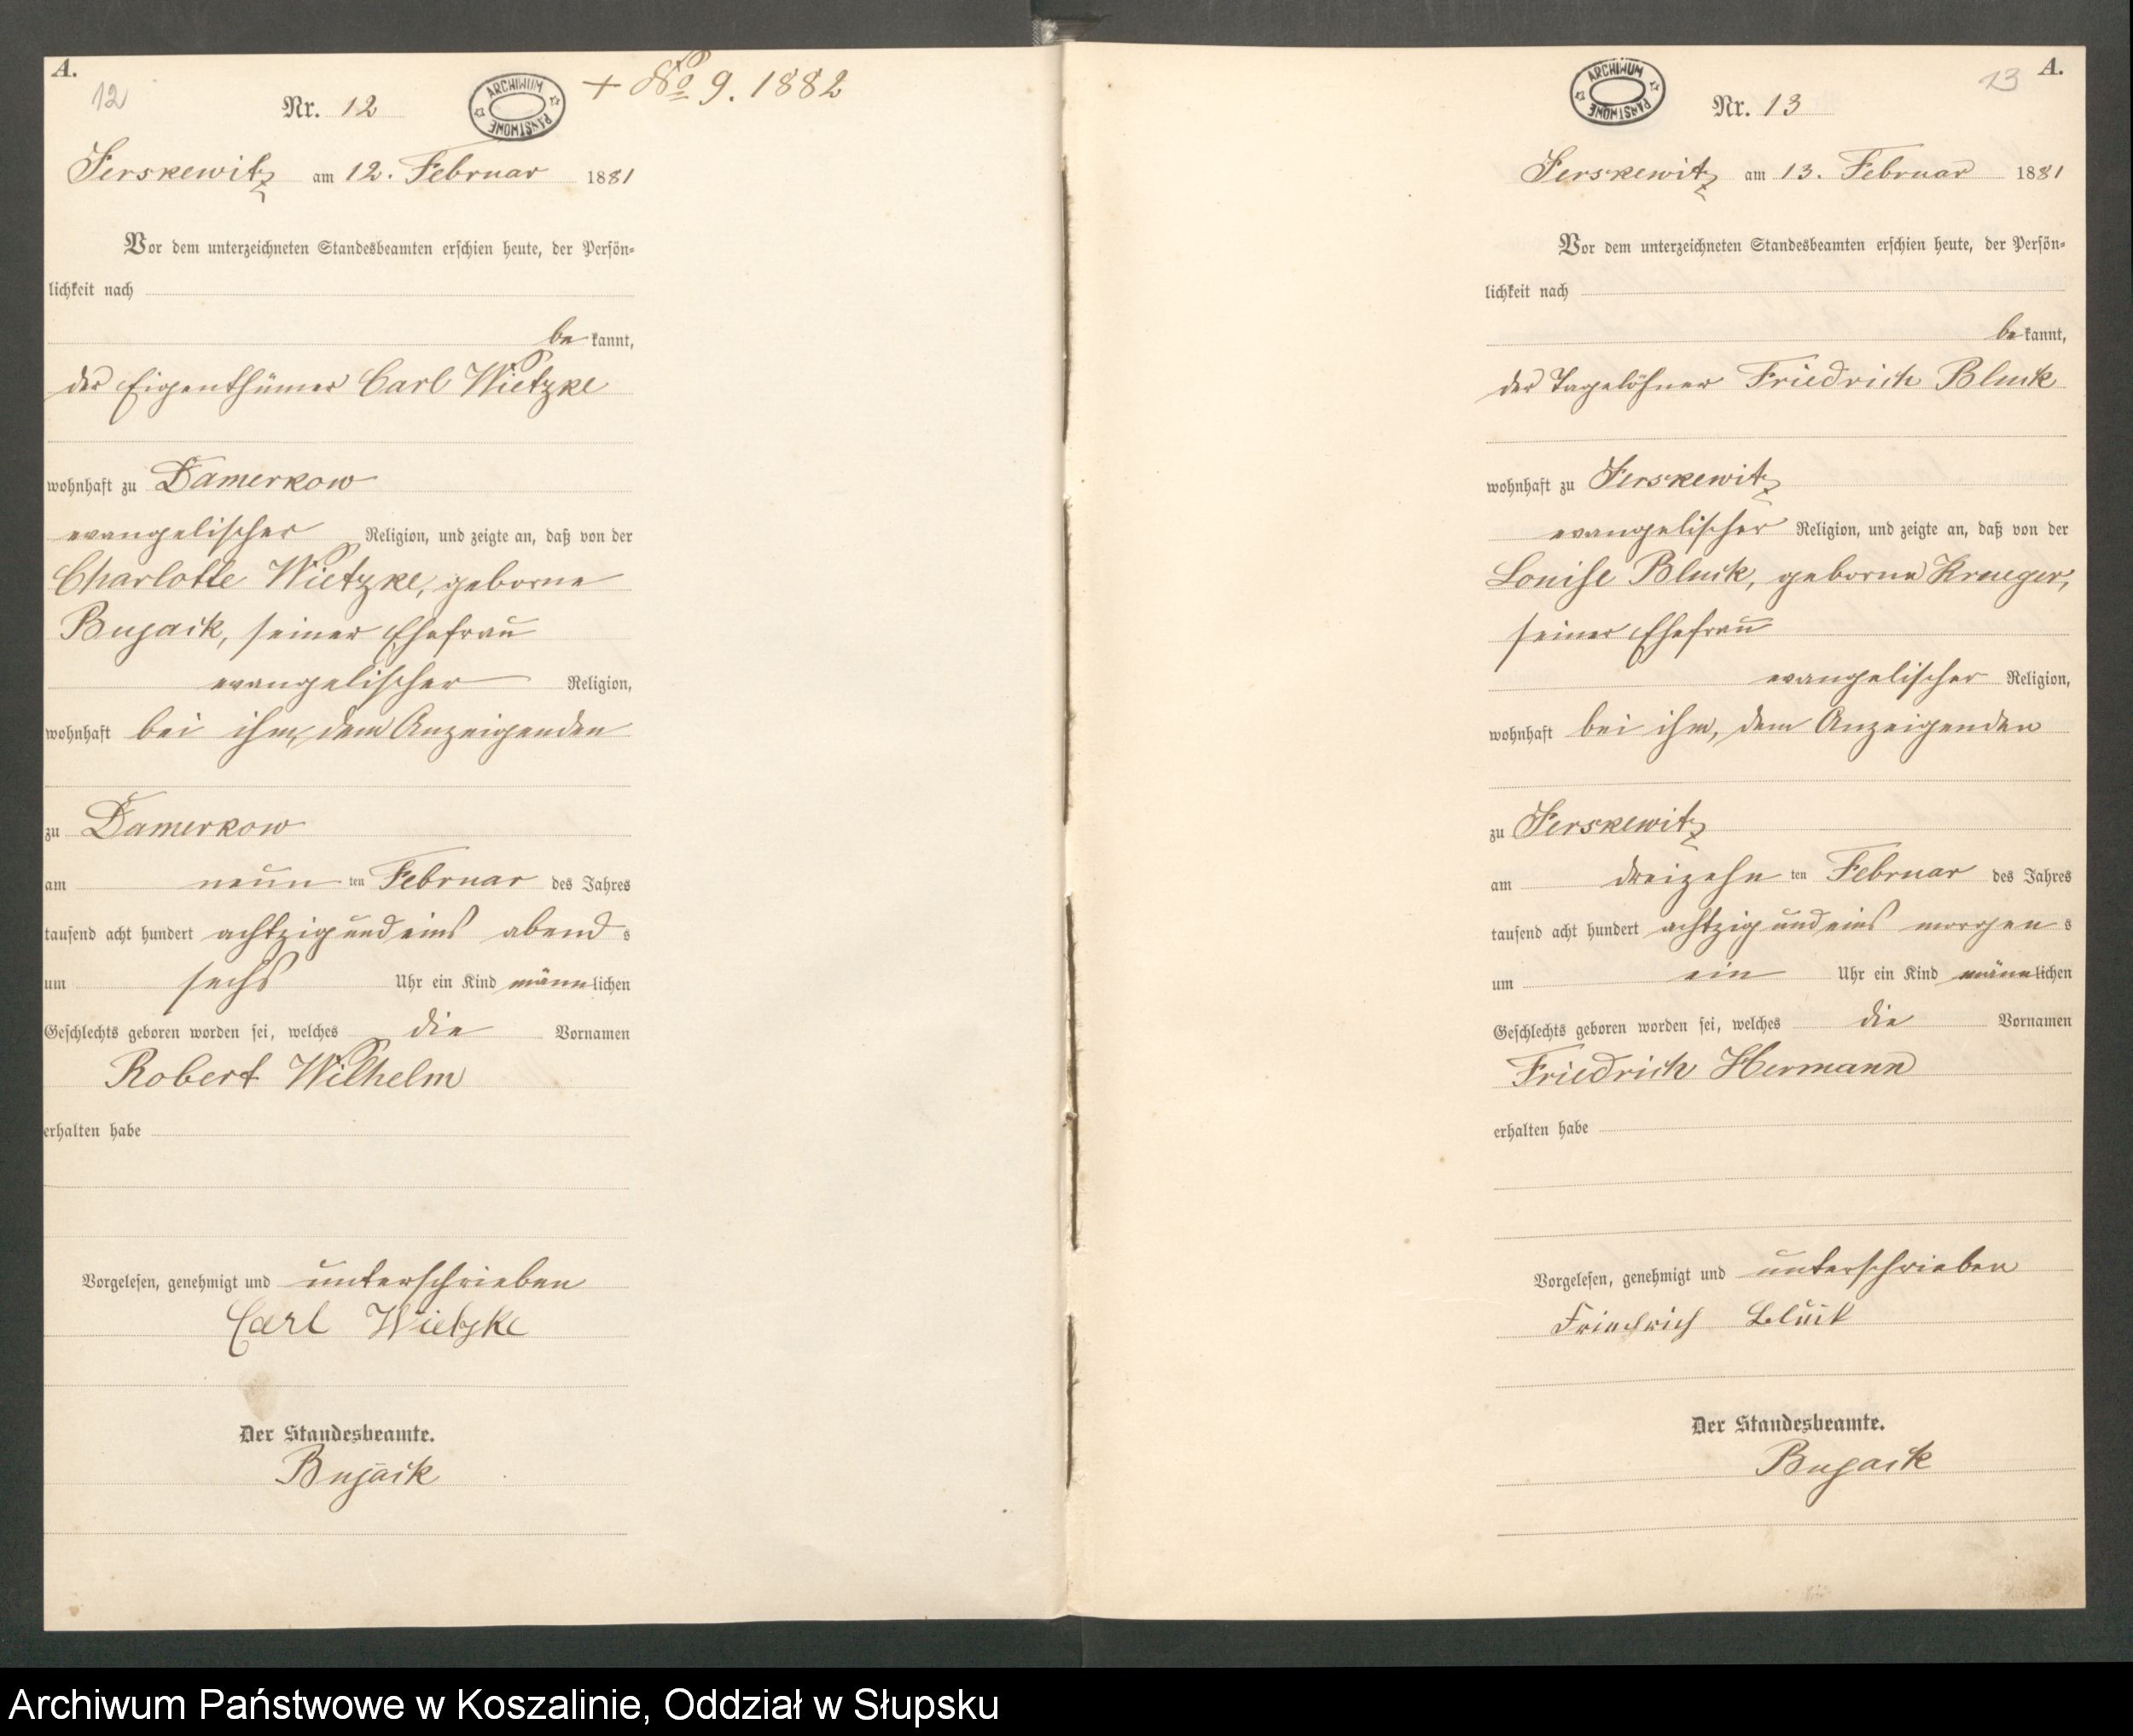 A.
12
Nr. 12
ARCHIWUM PAŃSTWOWE
+ No 9. 1882
Jerskewitz am 12. Februar 1881
Vor dem unterzeichneten Standesbeamten erschien heute, der Persön-
lichkeit nach
be kannt,
der Eigenthümer Carl Wietzke
wohnhaft zu Damerkow
evangelischer Religion, und zeigte an, daß von der
Charlotte Wietzke, geborne
Bujack, seiner Ehefrau
evangelischer Religion,
wohnhaft bei ihm, dem Anzeigenden
zu Damerkow
am neun ten Februar des Jahres
tausend acht hundert achtzig und eins abend s
um sechs Uhr ein Kind männ lichen
Geschlechts geboren worden sei, welches die Vornamen
Robert Wilhelm
erhalten habe
Vorgelesen, genehmigt und unterschrieben
Carl Wietzke
Der Standesbeamte.
Bujack
A.
13
ARCHIWUM PAŃSTWOWE
Nr. 13
Jerskewitz am 13. Februar 1881
Vor dem unterzeichneten Standesbeamten erschien heute, der Persön-
lichkeit nach
be kannt,
der Tagelöhner Friedrich Bluck
wohnhaft zu Jerskewitz
evangelischer Religion, und zeigte an, daß von der
Louise Bluck, geborne Krueger,
seiner Ehefrau
evangelischer Religion,
wohnhaft bei ihm, dem Anzeigenden
zu Jerskewitz
am dreizehn ten Februar des Jahres
tausend acht hundert achtzig und eins morgen s
um ein Uhr ein Kind männ lichen
Geschlechts geboren worden sei, welches die Vornamen
Friedrich Hermann
erhalten habe
Vorgelesen, genehmigt und unterschrieben
Friedrich Bluck
Der Standesbeamte.
Bujack
Archiwum Państwowe w Koszalinie, Oddział w Słupsku